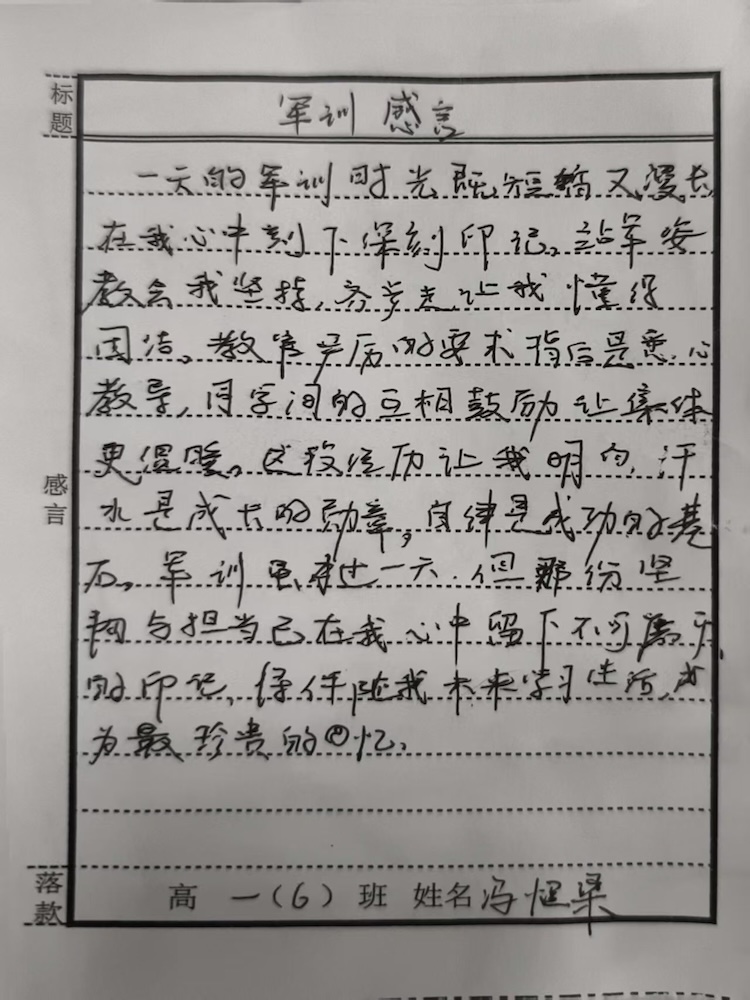 标题
军训感言
一天的军训时光既短暂又漫长
在我心中刻下深刻印记。站军姿
教会我坚持，齐步走让我懂得
团结。教官严厉的要求背后是悉心
教导，同学间的互相鼓励让集体
更温暖。这段经历让我明白，汗
水是成长的勋章，自律是成功的基
石。军训虽未过一天，但那份坚
韧与担当已在我心中留下不可磨灭
的印记，将伴随我未来学习生活，成
为最珍贵的回忆。
感言
落款
高一（6）班 姓名冯